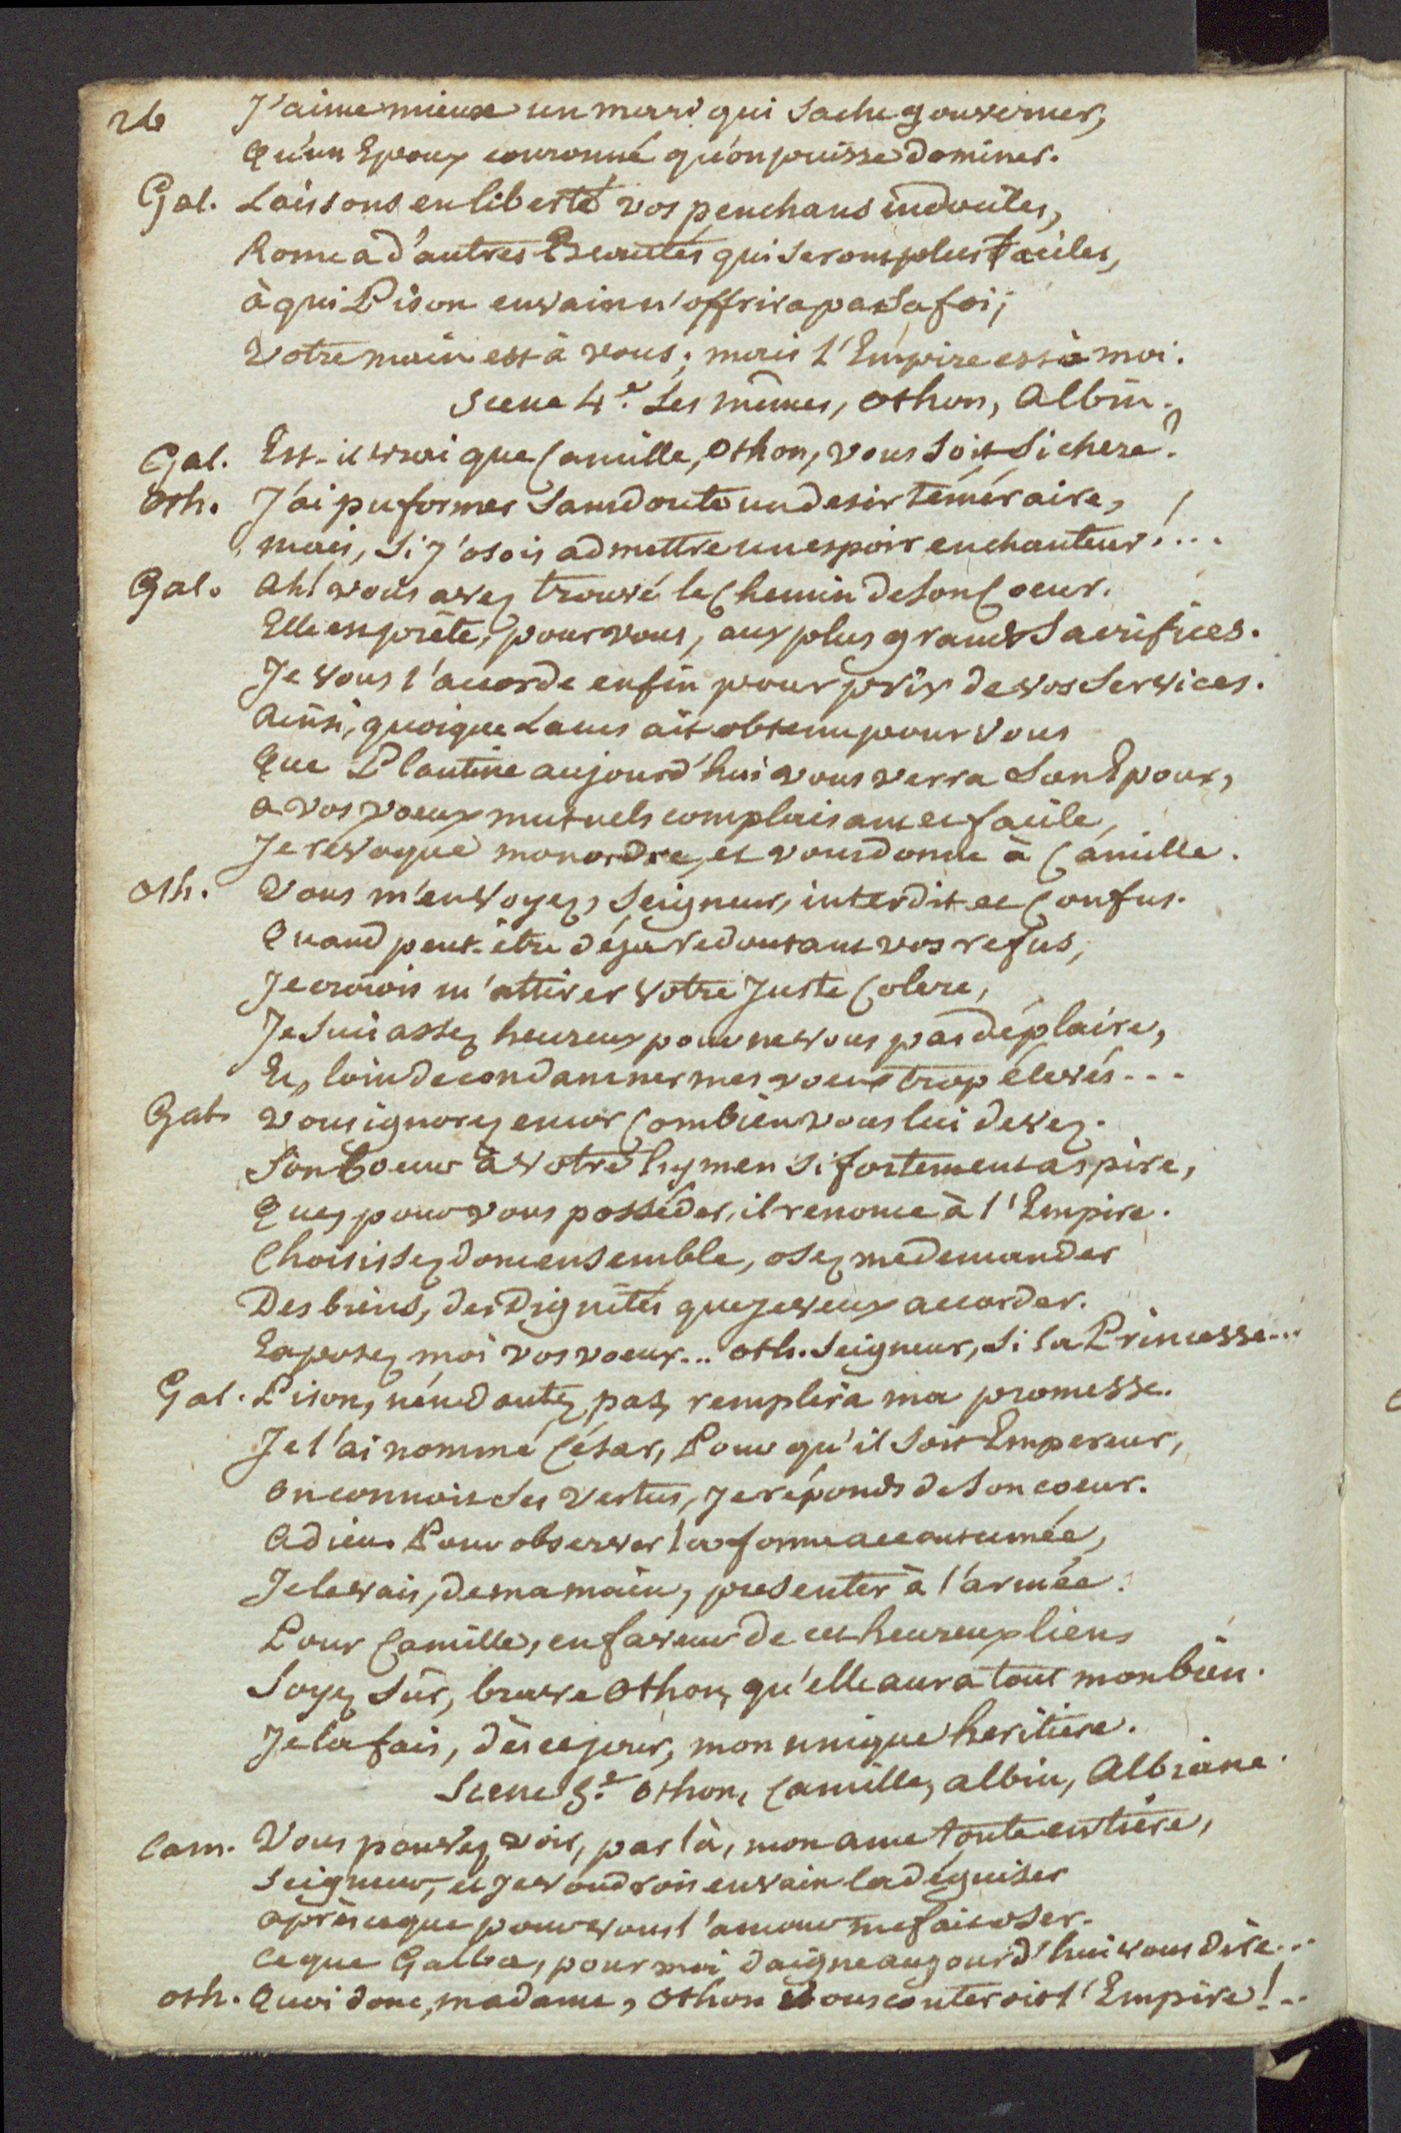 26 J'aime mieux un mari qui sache gouverner,
Qu'un Epoux couronné qu'on puisse dominer.
Gal. Laissons en liberté vos penchans indociles,
Rome a d'autres Beautés qui seront plus faciles,
à qui Pison envain n'offrira pas sa foi;
Votre main est à vous; mais l'Empire est à moi.
Scene 4e. Les mêmes, Othon, Albin.
Gal. Est-il vrai que Camille, Othon, vous soit si chere?
Oth. J'ai pu former sans doute un desir téméraire,
mais, si j'osois admettre un espoir enchanteur!...
Gal. Ah! vous avez trouvé le Chemin de son Coeur.
Elle est prête, pour vous, aux plus grands Sacrifices.
Je vous l'accorde enfin pour prix de vos Services.
Ainsi, quoique Lacus ait obtenu pour vous
Que Plautine aujourd'hui vous verra son Epoux,
a vos voeux mutuels complaisant et facile,
Je révoque mon ordre, et vous donne à Camille.
Oth. Vous m'en voyez, Seigneur, interdit et Confus.
Quand peut-être déja redoutant vos refus,
Je croiois m'attirer votre Juste Colere,
Je suis assez heureux pour ne vous pas déplaire,
Et, loin de condamner mes voeux trop élevés...
Gal. Vous ignorez encor Combien vous lui devez.
Son Coeur à votre hymen si fortement aspire,
Que, pour vous posséder, il renonce à l'Empire.
Choisissez donc ensemble, osez me demander
Des biens, des Dignités que je veux accorder.
Exposez moi vos voeux... Oth. Seigneur, si la Princesse...
Gal. Pison, n'en doutez pas, remplira ma promesse.
Je l'ai nommé César, Pour qu'il soit Empereur,
On connoit ses vertus, je réponds de son coeur.
Adieu. Pour observer la forme accoutumée,
Je le vais, de ma main, presenter à l'armée.
Pour Camille, en faveur de ces heureux liens
Soyez sûr, brave Othon, qu'elle aura tout mon bien.
Je la fais, dès ce jour, mon unique heritiere.
Scene 5e. Othon, Camille, albin, Albiane.
Cam. Vous pouvez voir, par là, mon ame toute entiere,
Seigneur, et je voudrois envain la déguiser
après ce que pour vous l'amour me fait oser.
Ce que Galba, pour moi daigne aujourd'hui vous dire...
Oth. Quoi donc, madame, Othon vous couteroit l'Empire!..